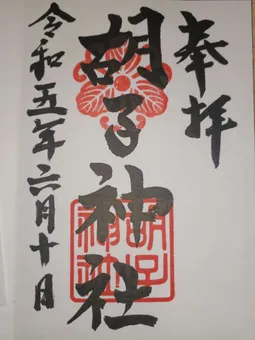 奉拝
胡子神社
令和五年六月十日
胡子
神社